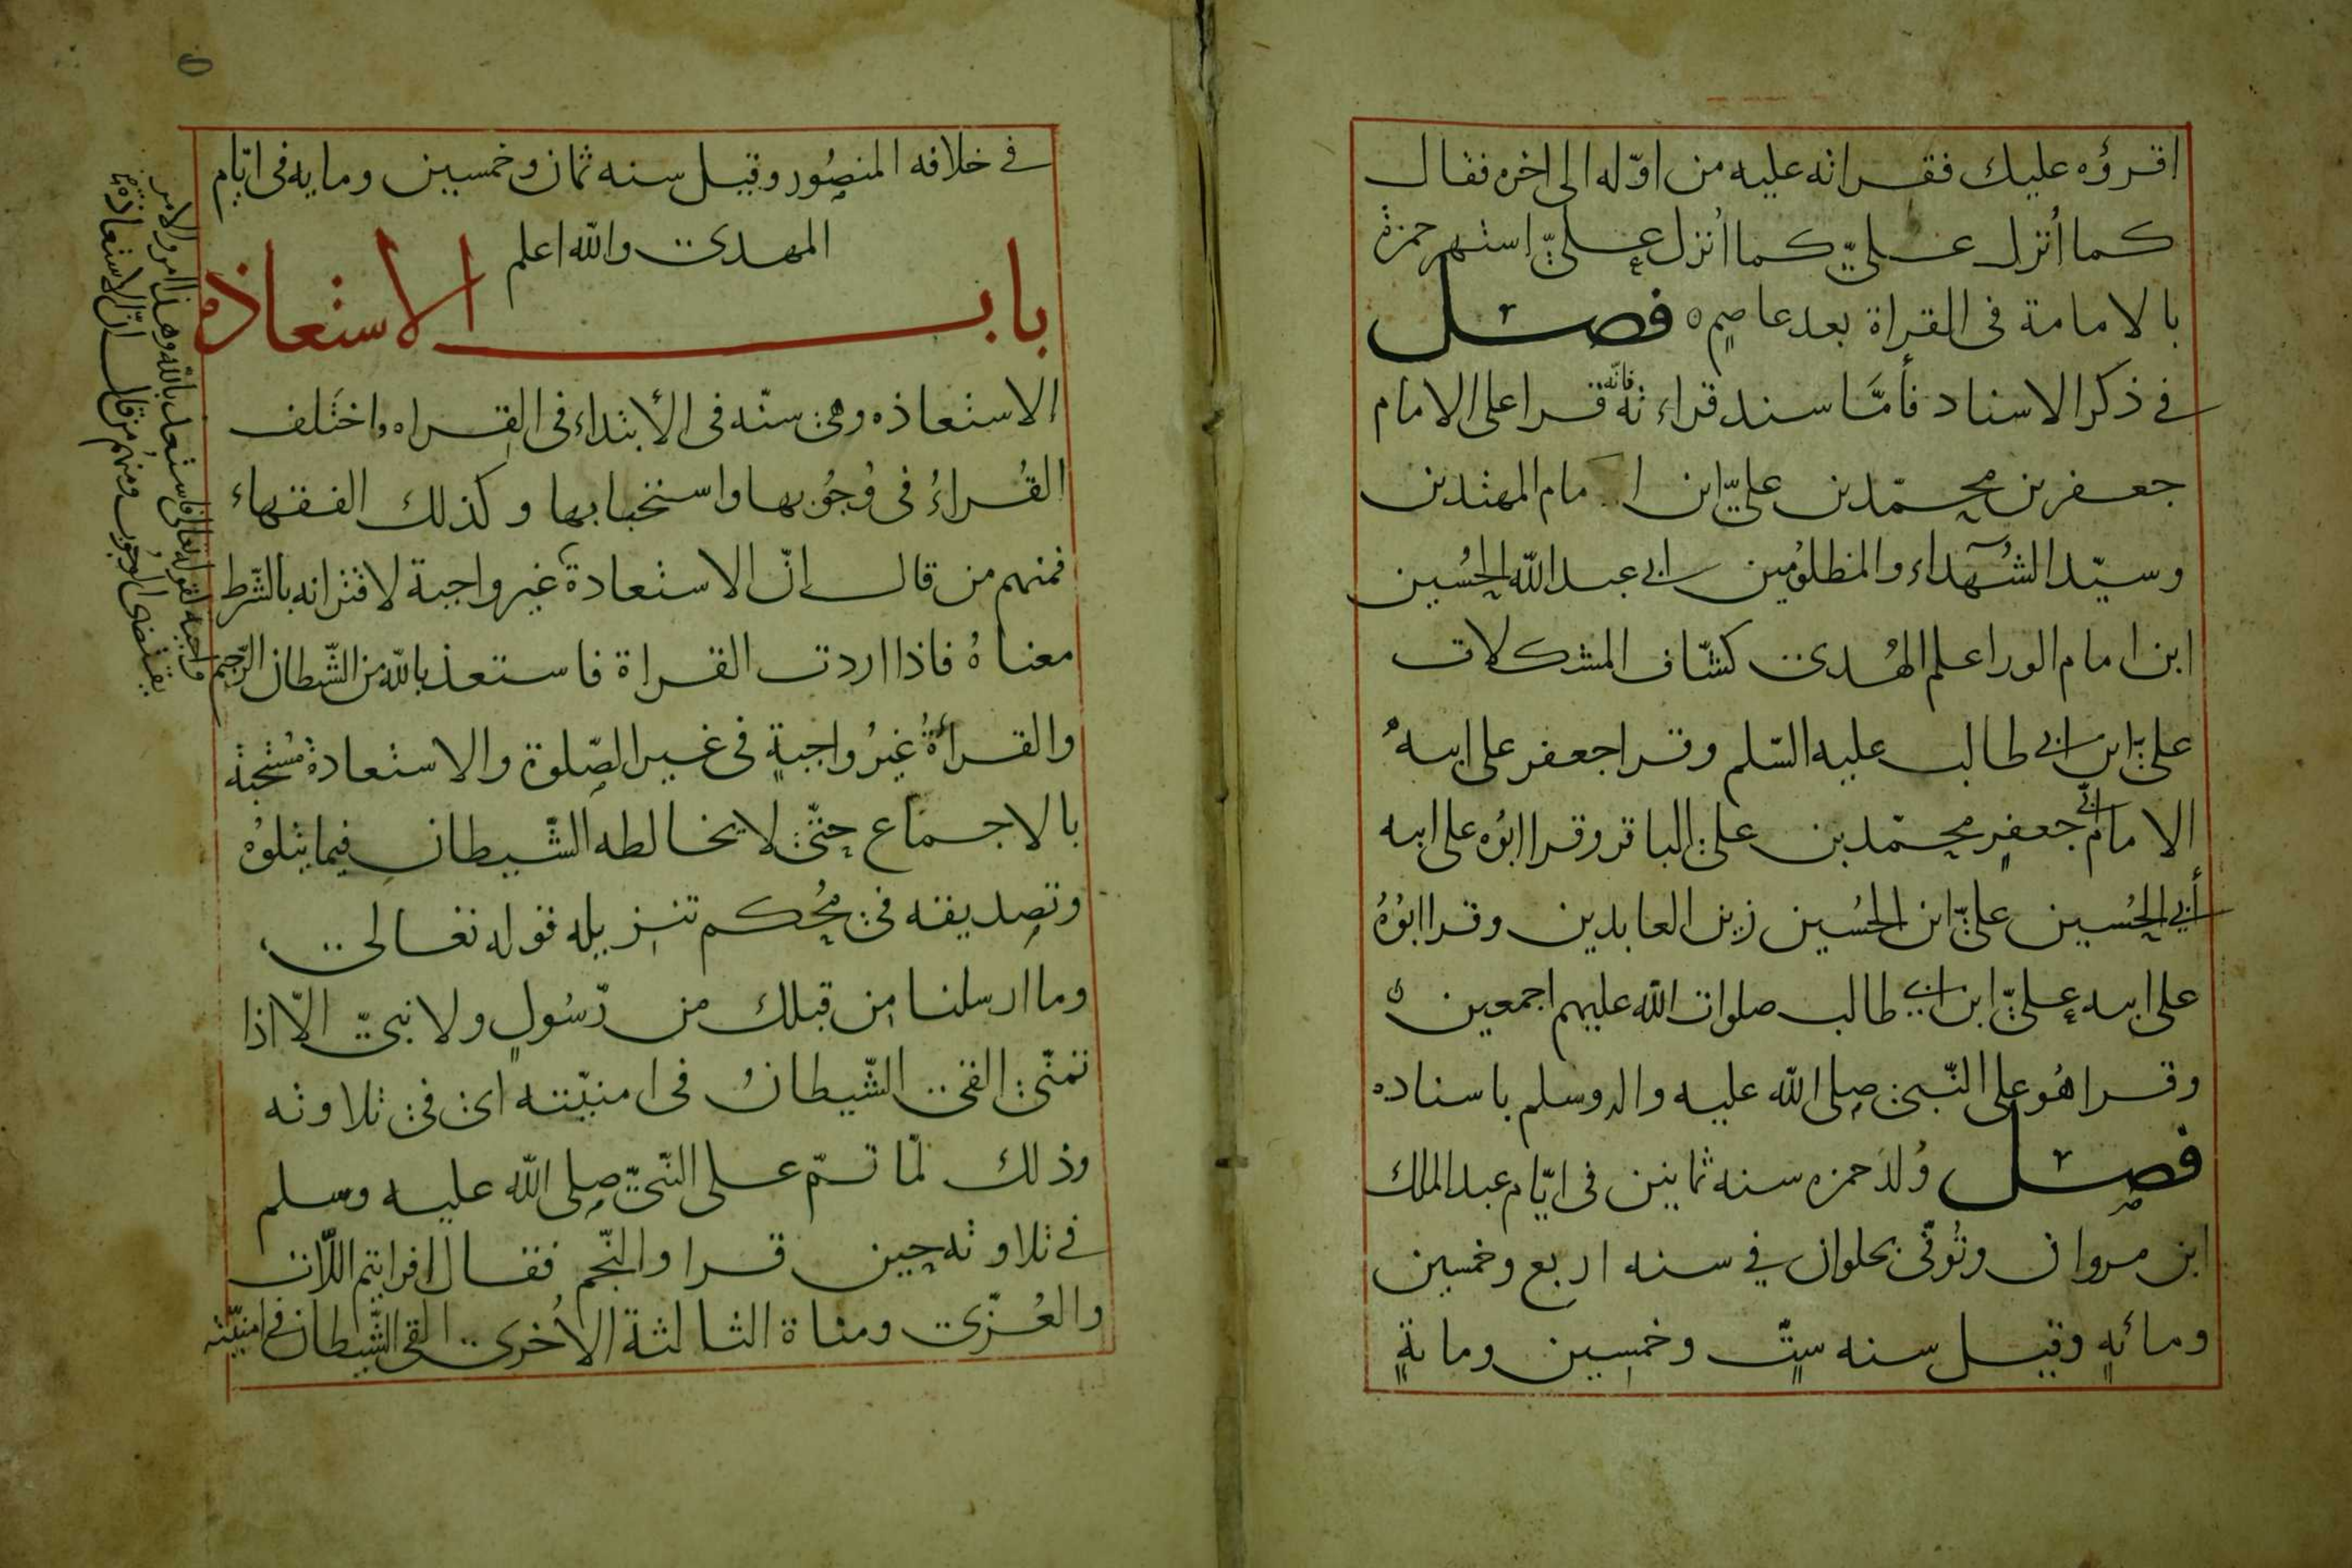 اقرؤه عليك فقرأته عليه من اوّله الى اخره فقال
كما أنزل عليّ كما أنزل عليّ إستهر حمزة
بالامامة فى القراة بعد عاصم فصل
فى ذكر الاسناد فأمّا سند قراءته فانّه قرا على الامام
جعفر بن محمّد بن عليّ ابن ا مام المهتدين
وسيّد الشهداء والمظلومين ابى عبد الله الحسين
ابن امام الورا علم الهُدى كشّاف المشكلات
عليّ ابن ابى طالب عليه السّلم وقرا جعفر على ابيه
الامام أبى جعفر محمّد بن علىّ الباقر وقرا ابوُه على ابيه
أبي الحُسين علىّ ابن الحُسين زين العابدين وقرا ابوُهُ
على ابيه عليّ ابن ابى طالب صلوات الله عليهم اجمعين
وقرا هُو على النّبى صلى الله عليه واله وسلم باسناده
فصل وُلدَ حمزه سنه ثمانين فى ايّام عبد الملك
ابن مروان وتُوفّى بحلوان في سنه اربع وخمسين
ومائةٍ وقيل سنه ستٍّ وخمسين وماىةٍ
فى خلافه المنصُور وقيل سنه ثمان وخمسين ومايه فى ايّام
المهدى والله اعلم
باب الاستعاذه
الاستعاذه وهى سنّه فى الأبتداء فى القراه واختَلف
القُراءُ فى وُجُوبها واستحبابها وكذلك الفقهاء
فمنهم من قال انّ الاستعادة غير واجبة لاقترانه بالشّرط
معناهُ فاذا اردت القراة فاستعذ بالله من الشّيطان الرّجيم
والقرأةُ غيرُ واجبةٍ فى غير الصّلوة والاستعادة مُستحبة
بالاجماع حتّى لا يخالطه الشّيطان فيما يتلوُه
وتصديقه فى مُحكم تنزيله قوله تعالى
وما ارسلنا من قبلك من رّسُولٍ ولا نبىّ الّا اذا
تمنّى القى الشّيطانُ فى امنيّته اى فى تلاوته
وذلك لمّا تمّ على النّبىّ صلى الله عليه وسلم
فى تلاوته حين قرا والنّجم فقال افرايتم اللّات
والعُزّى ومناة الثالثة الاُخرى القى الشّيطان فى امنيّته
انّ الاستعاذه
واجبة لقوله تعالى فاستعذ بالله وهذا امر والامر
يقتضى الوجوب ومنهم من قال